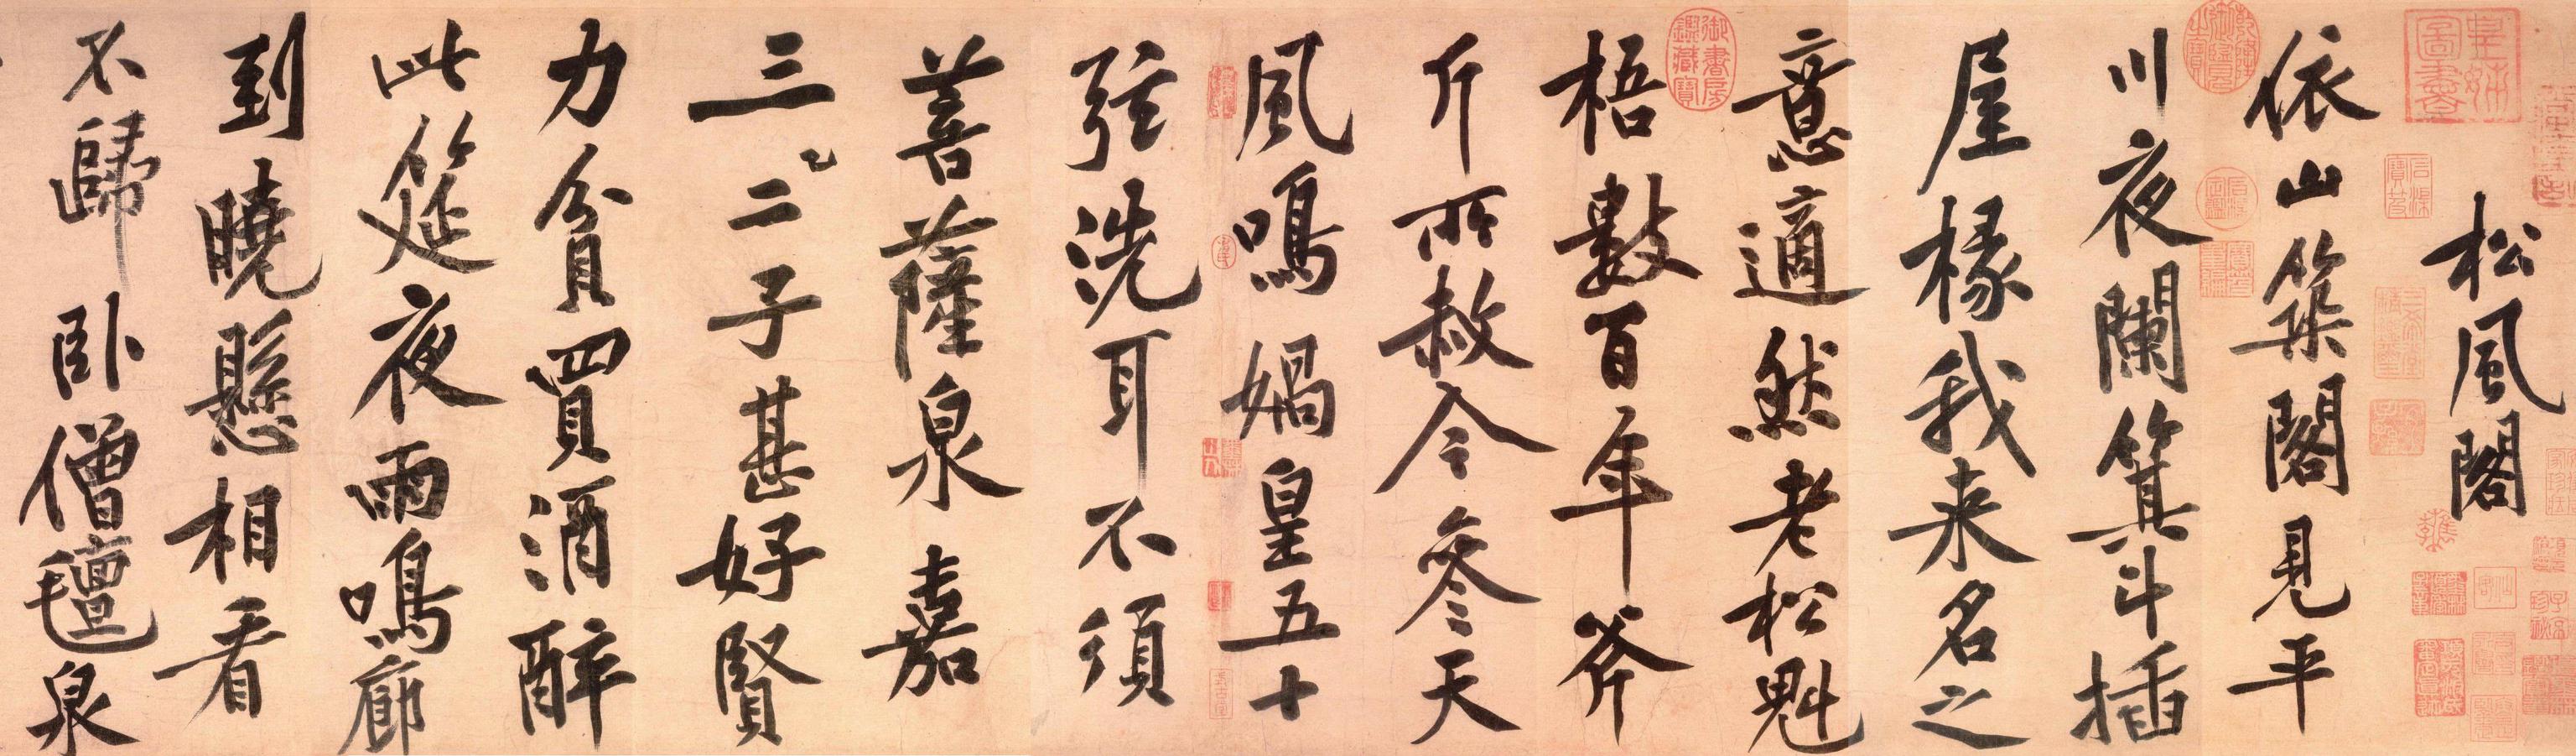 松風閣
依山築閣見平
川夜闌箕斗插
屋椽我来名之
意適然老松魁
梧數百年斧
斤所赦今參天
風鳴媧皇五十
弦洗耳不須
菩薩泉嘉
三二子甚好賢
力貧買酒醉
此筵夜雨鳴廊
到曉懸相看
不歸卧僧氈泉
御書房鑑藏寶